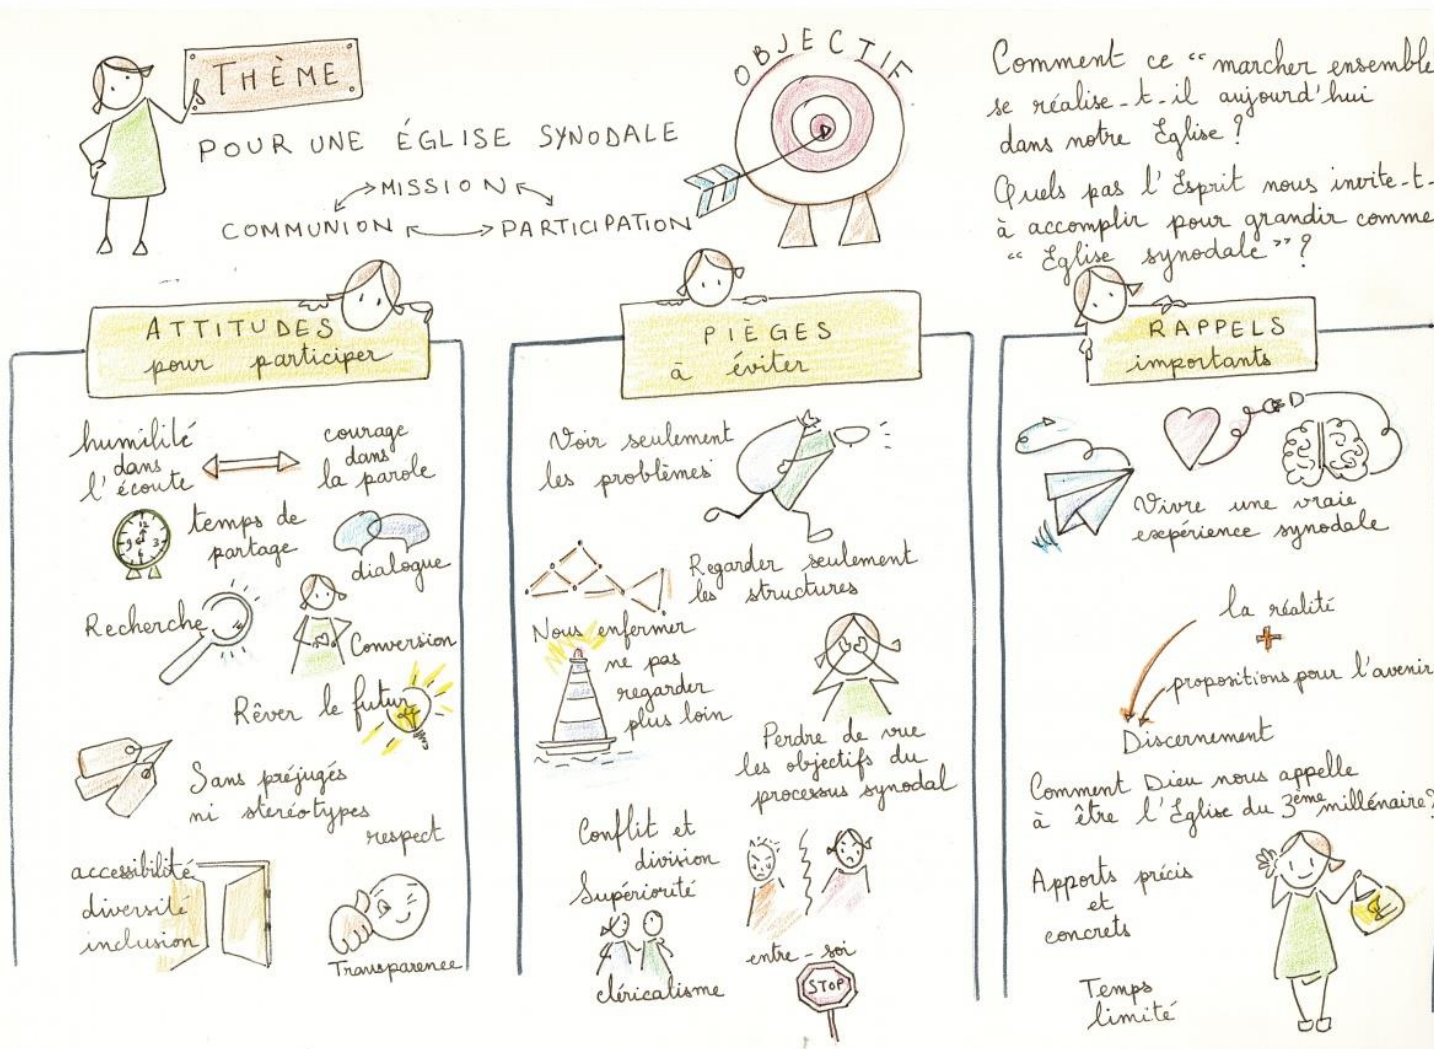 THÈME
POUR UNE ÉGLISE SYNODALE
MISSION
COMMUNION
PARTICIPATION
OBJECTIF
Comment ce "marcher ensemble
se réalise-t-il aujourd'hui
dans notre Église ?
Quels pas l'Esprit nous invite-t-
à accomplir pour grandir comme
"Église synodale" ?
ATTITUDES
pour participer
humilité
dans
l'écoute
courage
dans
la parole
12
9
6
3
temps de
partage
dialogue
Recherche
Conversion
Rêver le futur
Sans préjugés
ni stéréotypes
respect
accessibilité
diversité
inclusion
Transparence
PIÈGES
à éviter
Voir seulement
les problèmes
Regarder seulement
les structures
Nous enfermer
ne pas
regarder
plus loin
Perdre de vue
les objectifs du
processus synodal
Conflit et
division
Supériorité
cléricalisme
entre-soi
STOP
RAPPELS
importants
Vivre une vraie
expérience synodale
la réalité
+
propositions pour l'avenir
Discernement
Comment Dieu nous appelle
à être l'Église du 3ème millénaire?
Apports précis
et
concrets
Temps
limité